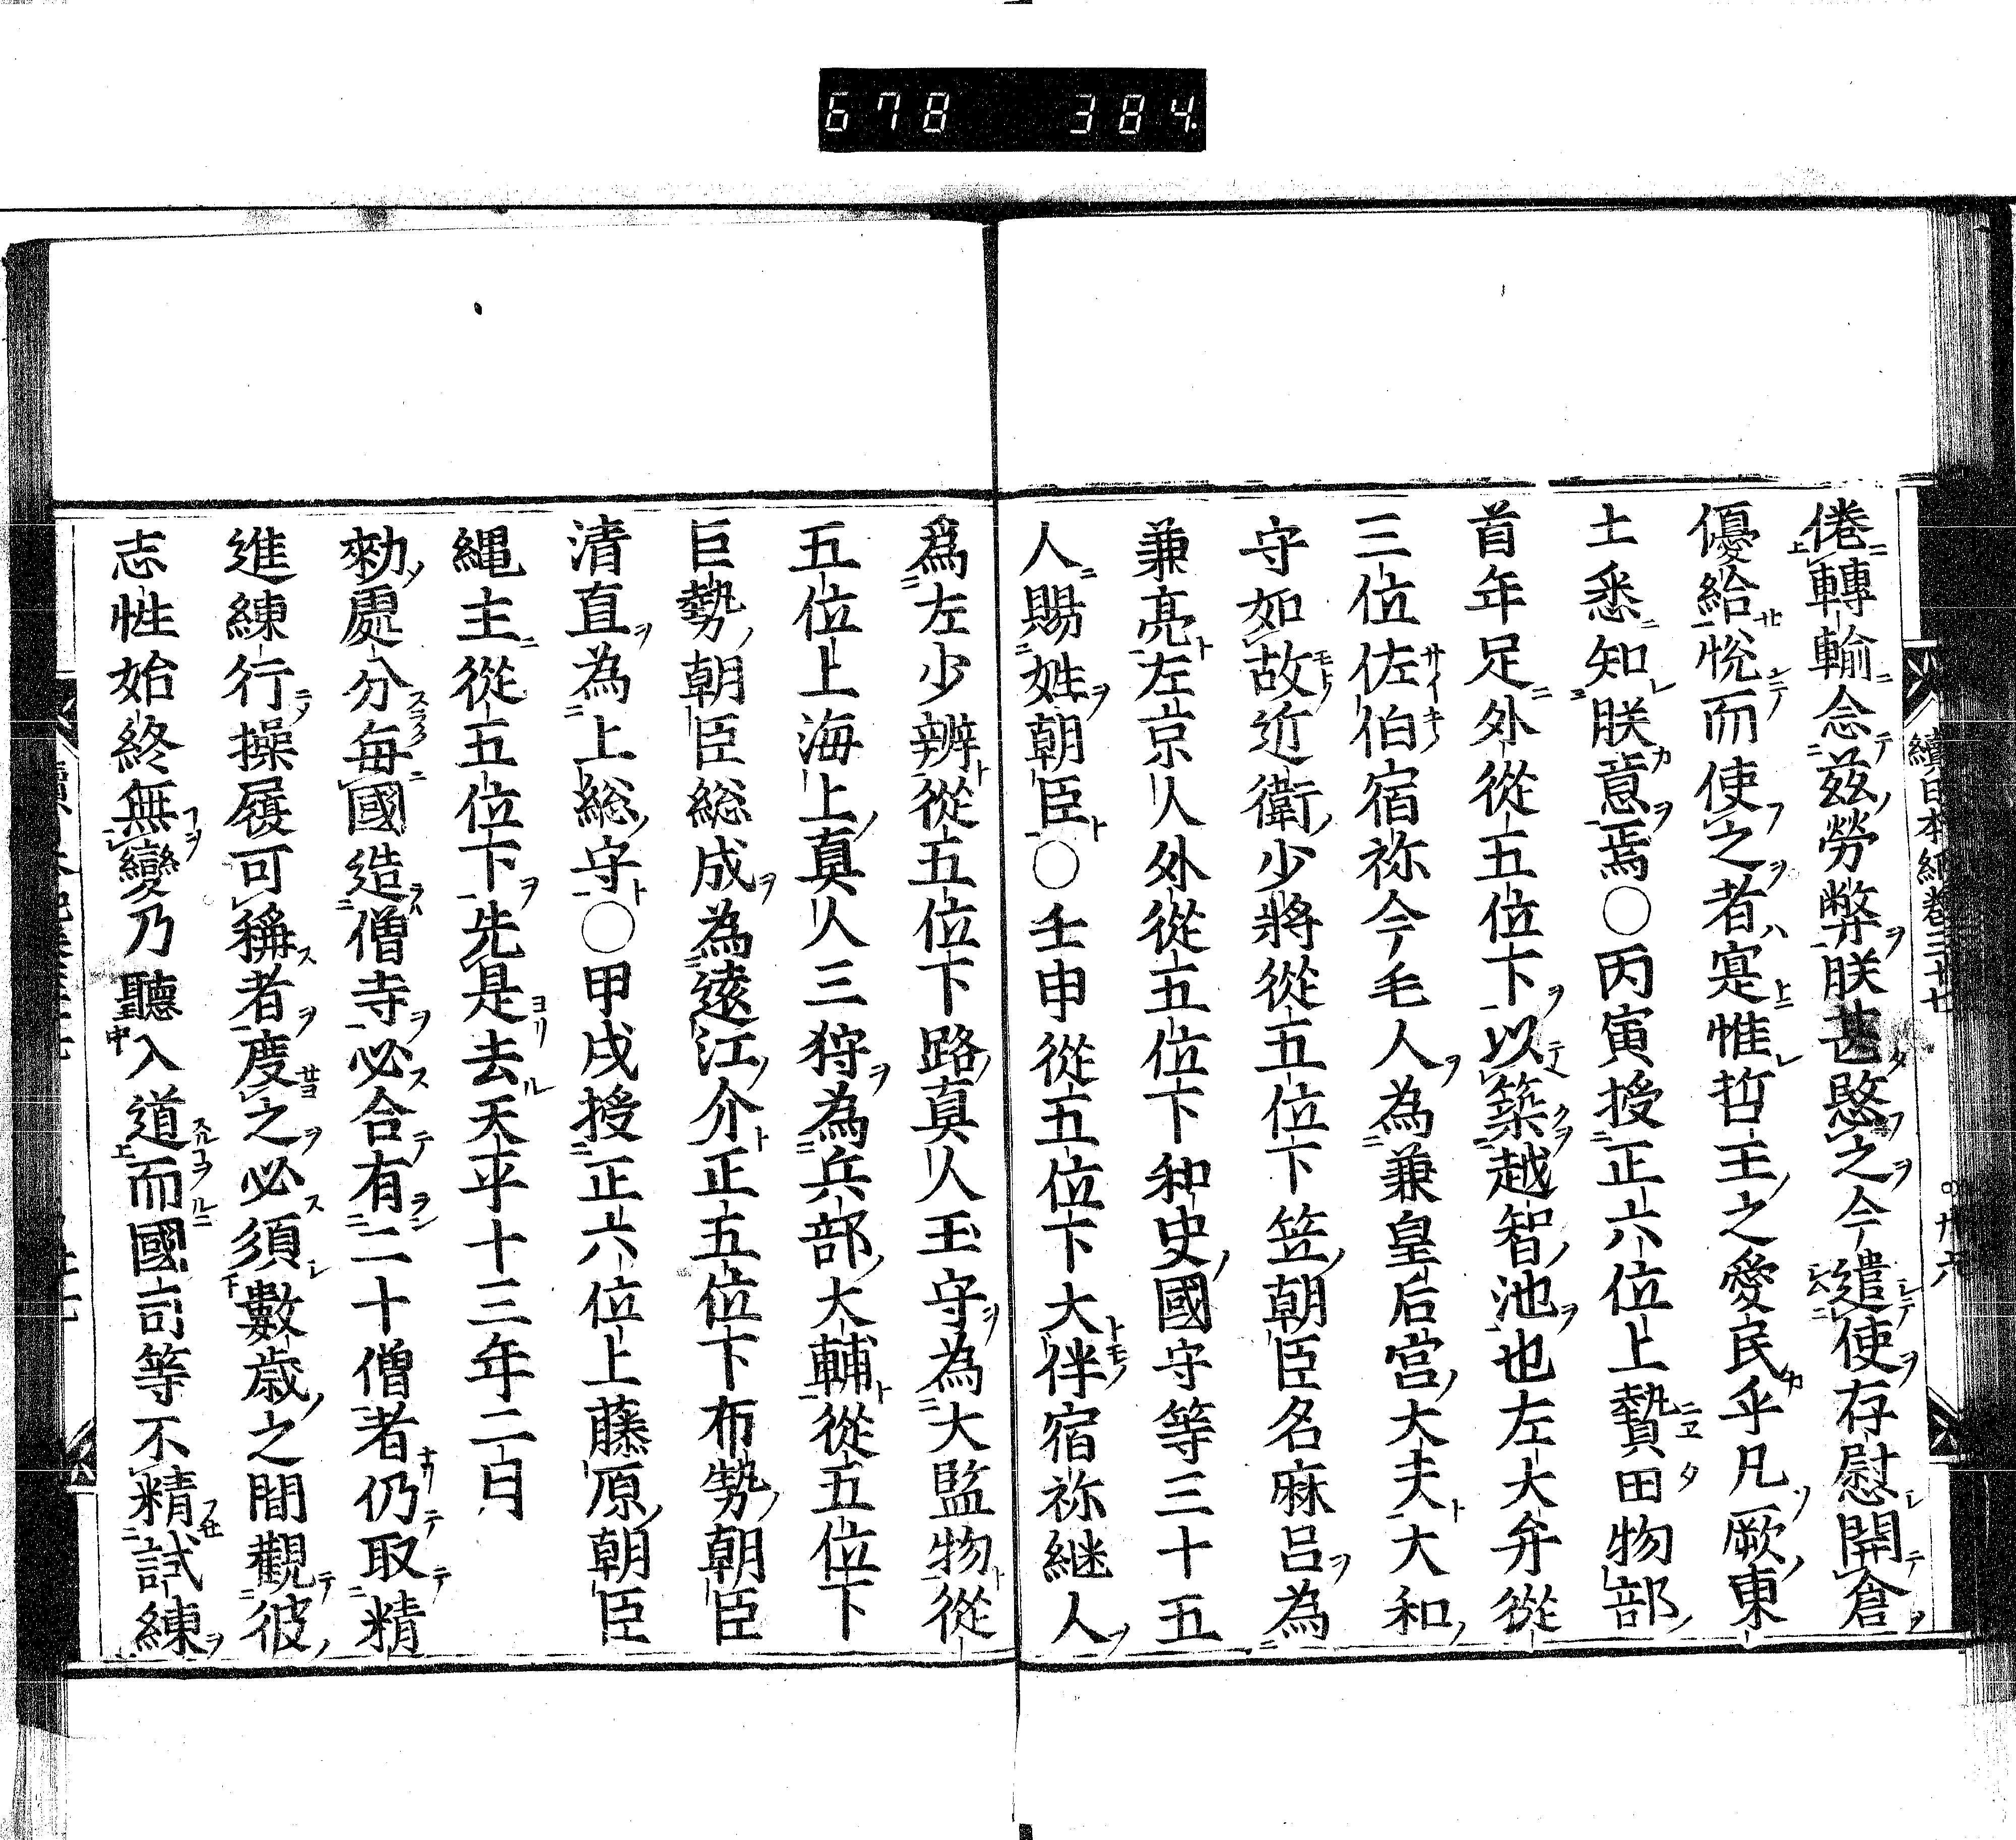 678 384
續日本紀卷三十七
倦轉輸念茲勞弊朕甚愍之今遣使存慰開倉
優給悅而使之者寔惟哲王之愛民乎凡厥東
土悉知朕意焉○丙寅授正六位上贄田物部
首年足外從五位下以築越智池也左大弁從
三位佐伯宿祢今毛人為兼皇后宮大夫大和
守如故近衛少將從五位下笠朝臣名麻呂為
兼亮左京人外從五位下和史國守等三十五
人賜姓朝臣○壬申從五位下大伴宿祢継人
爲左少辨從五位下路真人玉守為大監物從
五位上海上真人三狩為兵部大輔從五位下
巨勢朝臣総成為遠江介正五位下布勢朝臣
清直為上総守○甲戌授正六位上藤原朝臣
縄主從五位下先是去天平十三年二月
勑處分每國造僧寺必合有二十僧者仍取精
進練行操履可稱者度之必須數歲之間觀彼
志性始終無變乃聽入道而國司等不精試練